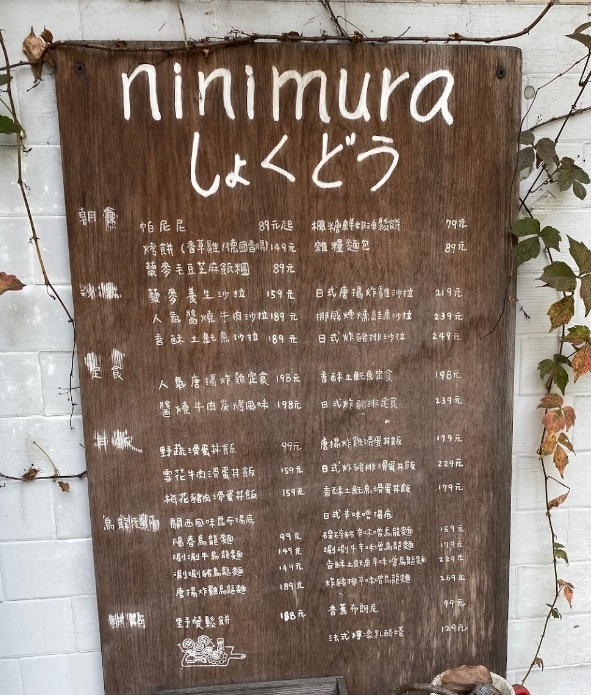 ninimura
しょくどう
朝食
帕尼尼 89元起 楓糖鮮奶油鬆餅 79元
烤餅(香草雞/德國香腸) 149元 雜糧麵包 89元
藜麥毛豆芝麻飯糰 89元
藜麥養生沙拉 159元 日式唐揚炸雞沙拉 219元
人氣醬燒牛肉沙拉 189元 挪威煙燻鮭魚沙拉 239元
香酥土魠魚沙拉 189元 日式炸豬排沙拉 249元
定食
人氣唐揚炸雞定食 198元 香酥土魠魚定食 198元
醬燒牛肉炭烤風味 198元 日式炸豬排定食 239元
丼飯
野蔬滑蛋丼飯 99元 唐揚炸雞滑蛋丼飯 179元
雪花牛肉滑蛋丼飯 159元 日式炸豬排滑蛋丼飯 229元
梅花豬肉滑蛋丼飯 159元 香酥土魠魚滑蛋丼飯 179元
烏龍 關西風味昆布湯底 日式辛味噌湯底
陽春烏龍麵 99元 辛味噌烏龍麵 159元
涮涮牛烏龍麵 149元 涮涮牛辛味噌烏龍麵 179元
涮涮豬烏龍麵 149元 香酥土魠魚辛味噌烏龍麵 229元
唐揚炸雞烏龍麵 189元 炸豬排辛味噌烏龍麵 269元
野餐鬆餅 188元 香蕉布朗尼 99元
法式檸檬乳酪塔 129元